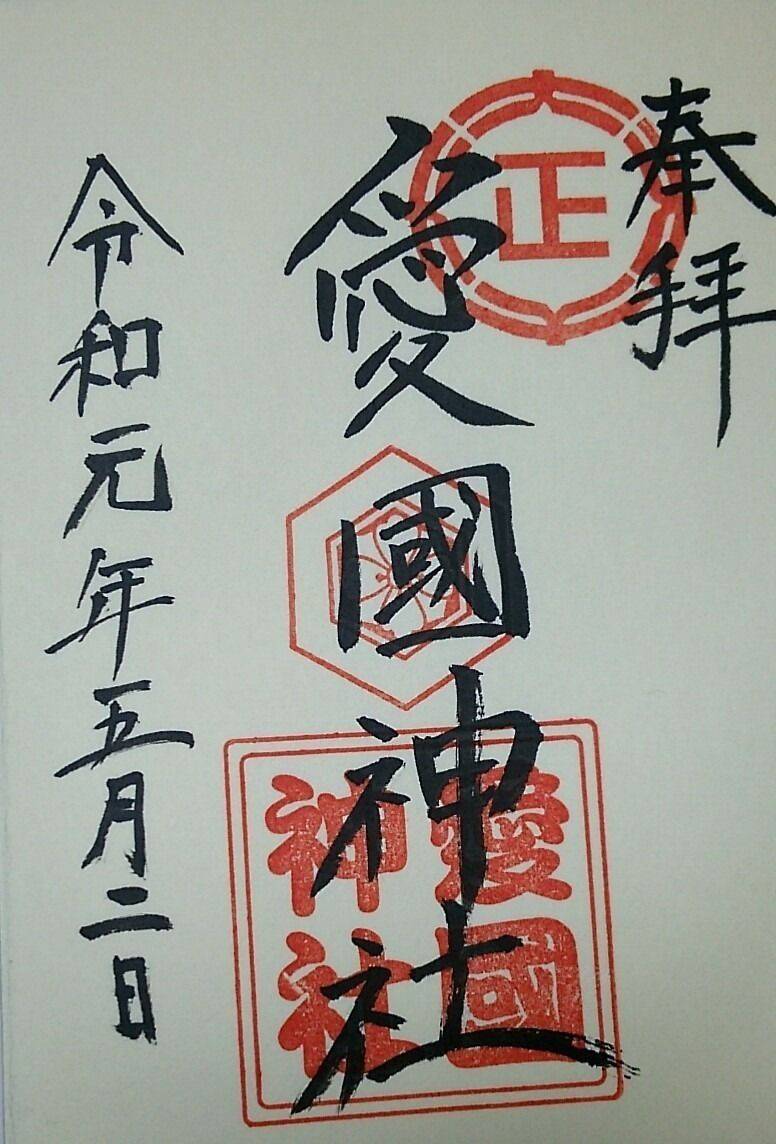 奉拝
正
愛國神社
愛國
神社
令和元年五月二日